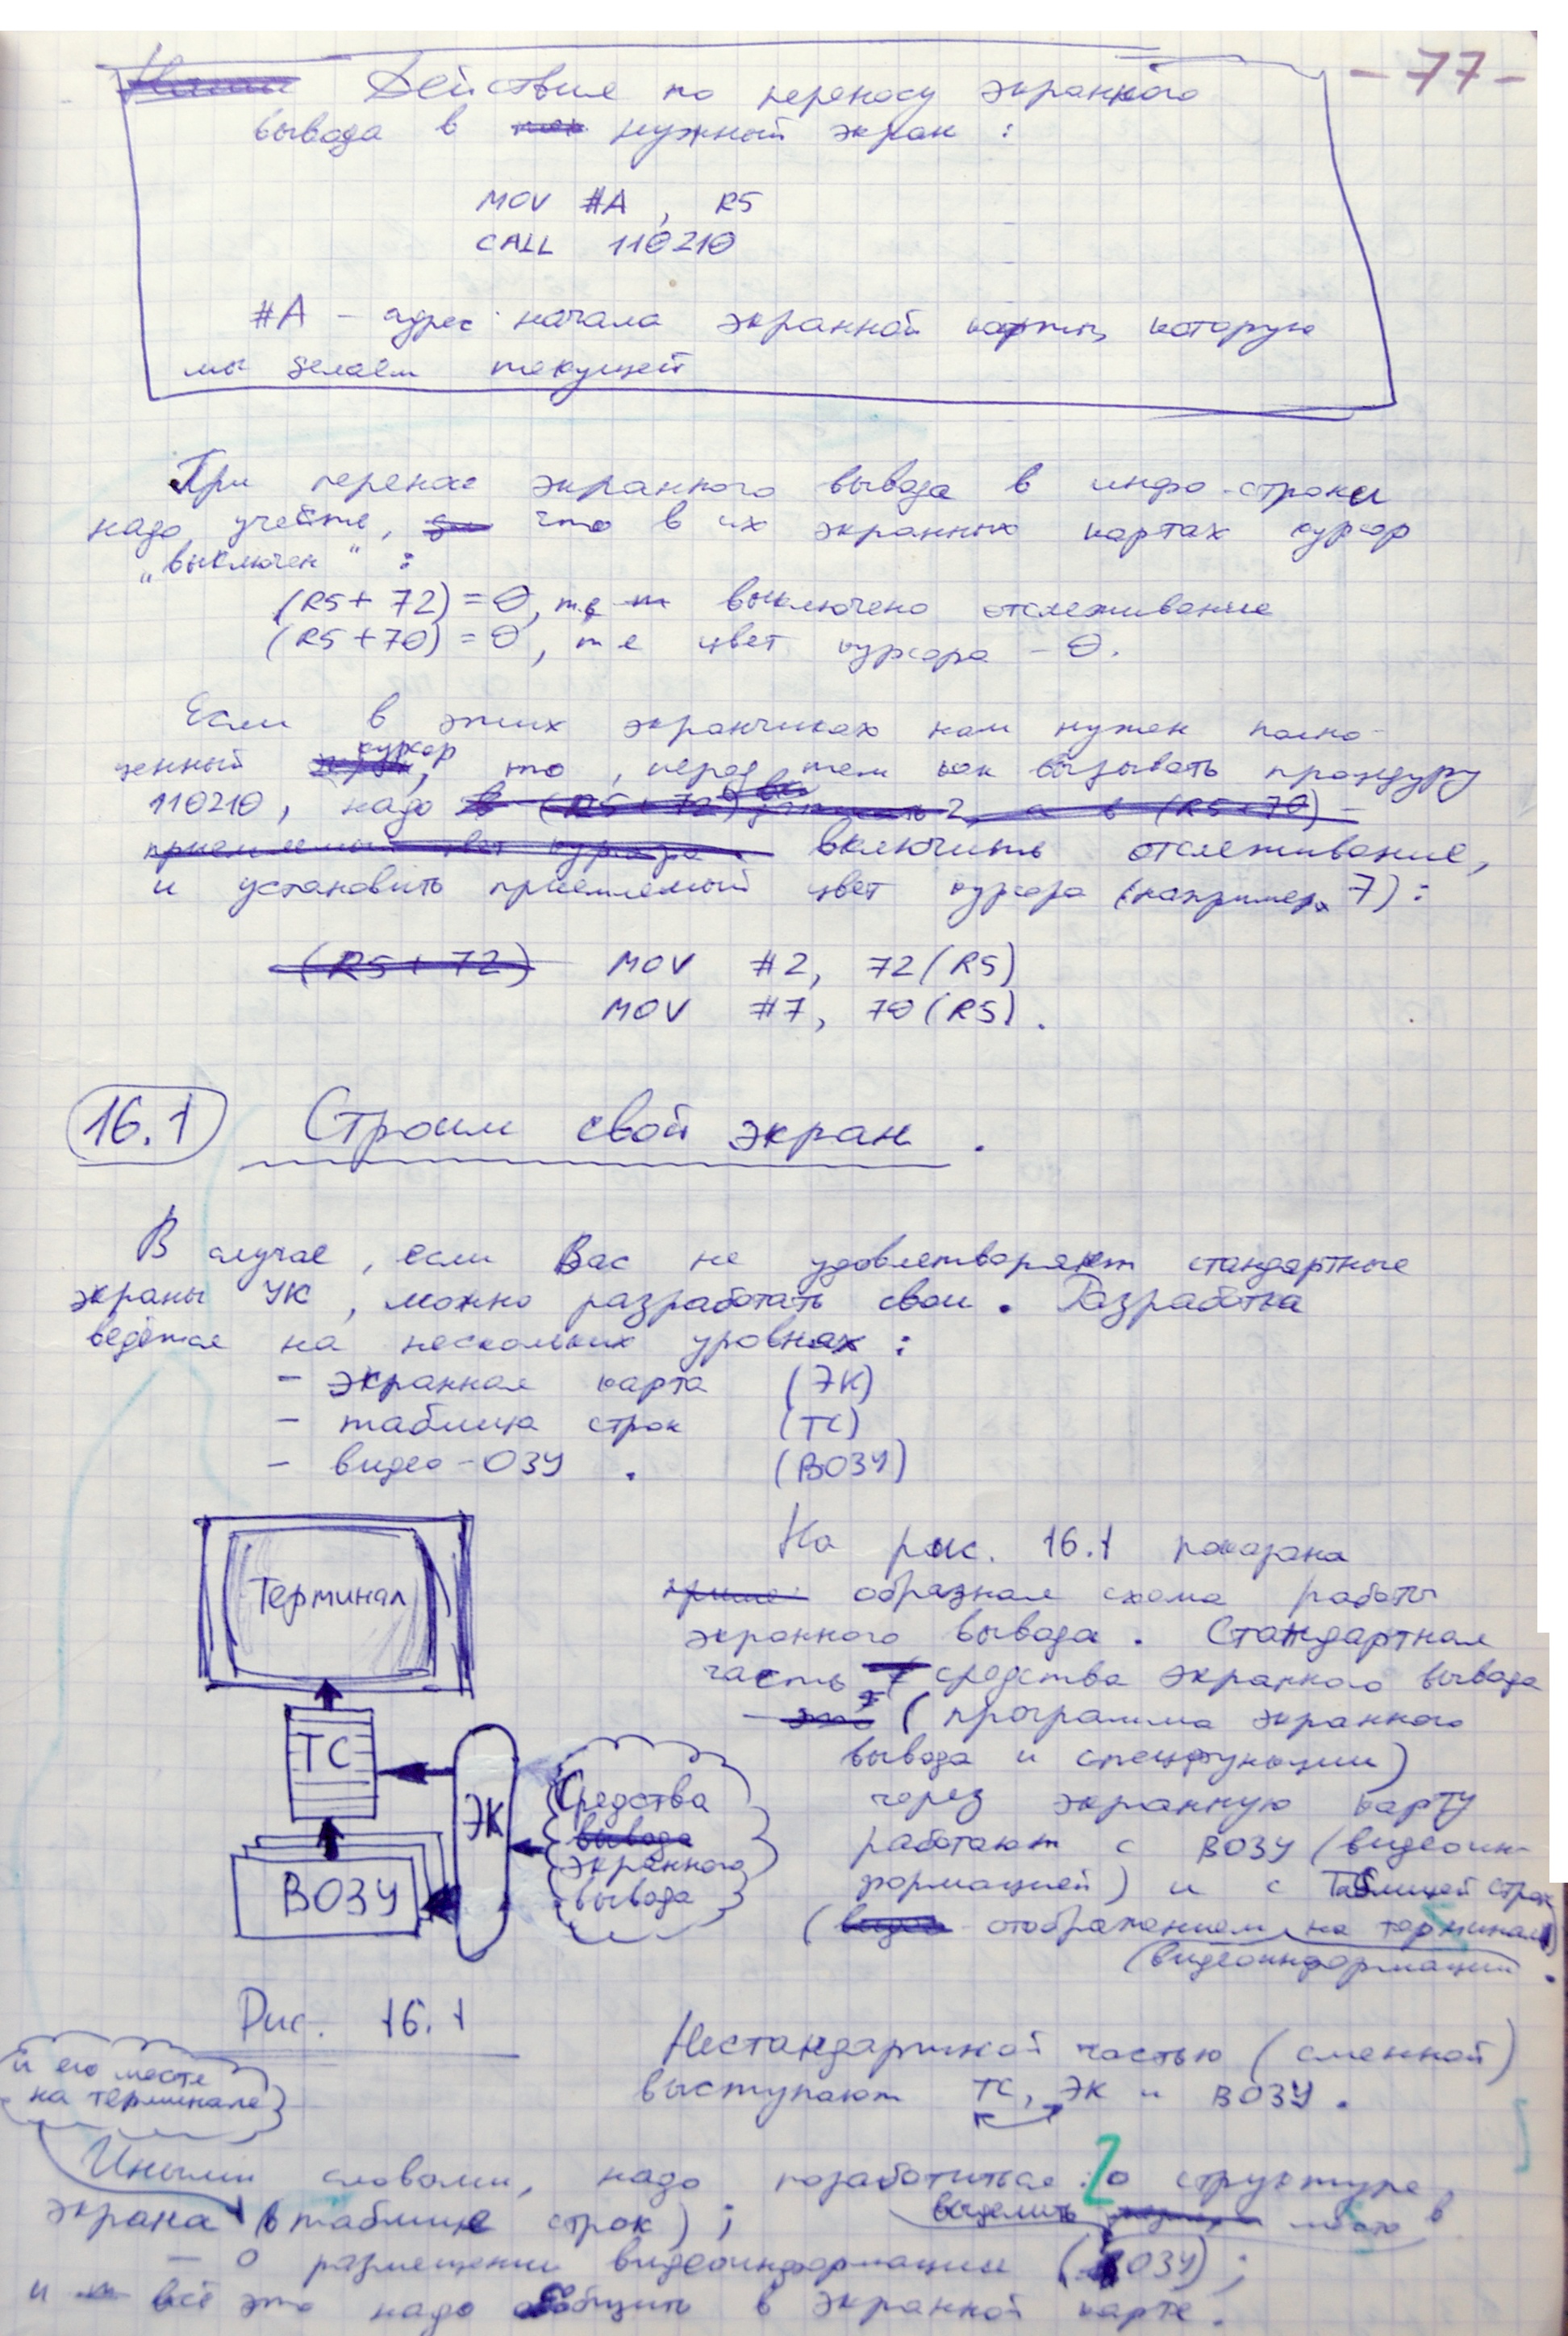 - 77 -
Действие по переносу экранного
вывода в нужный экран :
MOV #A , R5
CALL 110210
#A - адрес начала экранной карты, которую
мы делаем текущей
При переносе экранного вывода в инфо-строки
надо учесть, что в их экранных картах курсор
„выключен" :
(R5 + 72) = 0, т.е выключено отслеживание
(R5 + 70) = 0, т е цвет курсора - 0.
Если в этих экранчиках нам нужен полно-
ценный курсор, то , перед тем как вызывать процедуру
110210, надо
включить отслеживание,
и установить приемлемый цвет курсора (например, 7) :
(R5 + 72) MOV #2, 72(R5)
MOV #7, 70(R5).
16.1 Строим свой экран .
В случае , если Вас не удовлетворяют стандартные
экраны УК , можно разработать свои . Разработка
ведётся на нескольких уровнях :
- экранная карта (ЭК)
- таблица строк (ТС)
- видео-ОЗУ . (ВОЗУ)
Терминал
ТС
ЭК
ВОЗУ
Средства
вывода
экранного
вывода
Рис. 16.1
На рис. 16.1 показана
образная схема работы
экранного вывода . Стандартная
часть средства экранного вывода
( программа экранного
вывода и спецфункции)
через экранную карту
работают с ВОЗУ (видеоин-
формацией) и с таблицей строк
( отображением на терминал
видеоинформации .
Нестандартной частью ( сменной )
выступают ТС, ЭК и ВОЗУ .
и его месте
на терминале
Иными словами, надо позаботиться : о структуре
экрана (в таблице строк) ;
выделить место в
- о размещении видеоинформации (ВОЗУ) ;
и всё это надо сообщить в экранной карте .